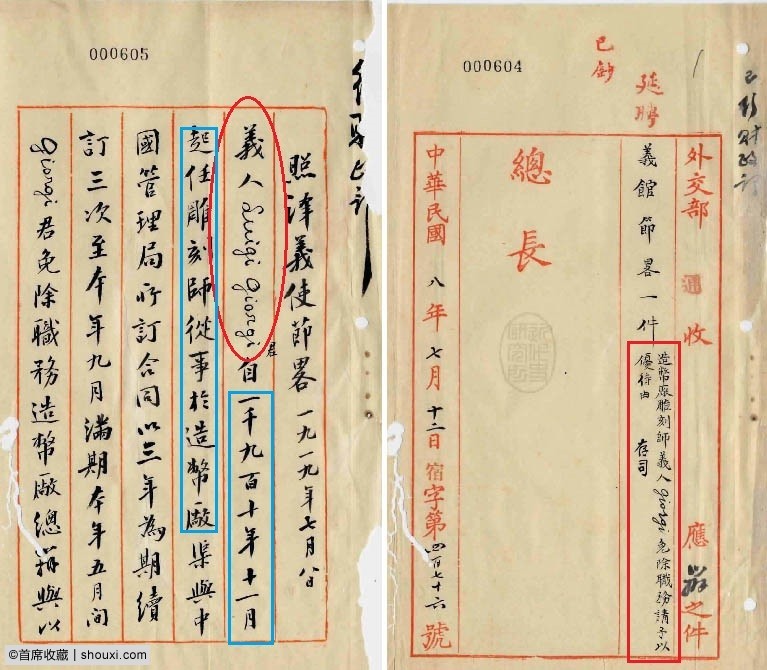 000604
已鈔
延聘
外交部 通 收 應辦之件
義館節畧一件
造幣廠雕刻師義人Giorgi免除職務請予以
優待由 存司
總長
中華民國八年七月十二日宿字第四百七十六號
000605
照譯義使節畧 一九一九年七月八日
義人Luigi Giorgi君自一千九百十年十一月
起任雕刻師從事於造幣廠渠與中
國管理局所訂合同以三年為期續
訂三次至本年九月滿期本年五月間
Giorgi君免除職務造幣廠總辦與以
©首席收藏 | shouxi.com